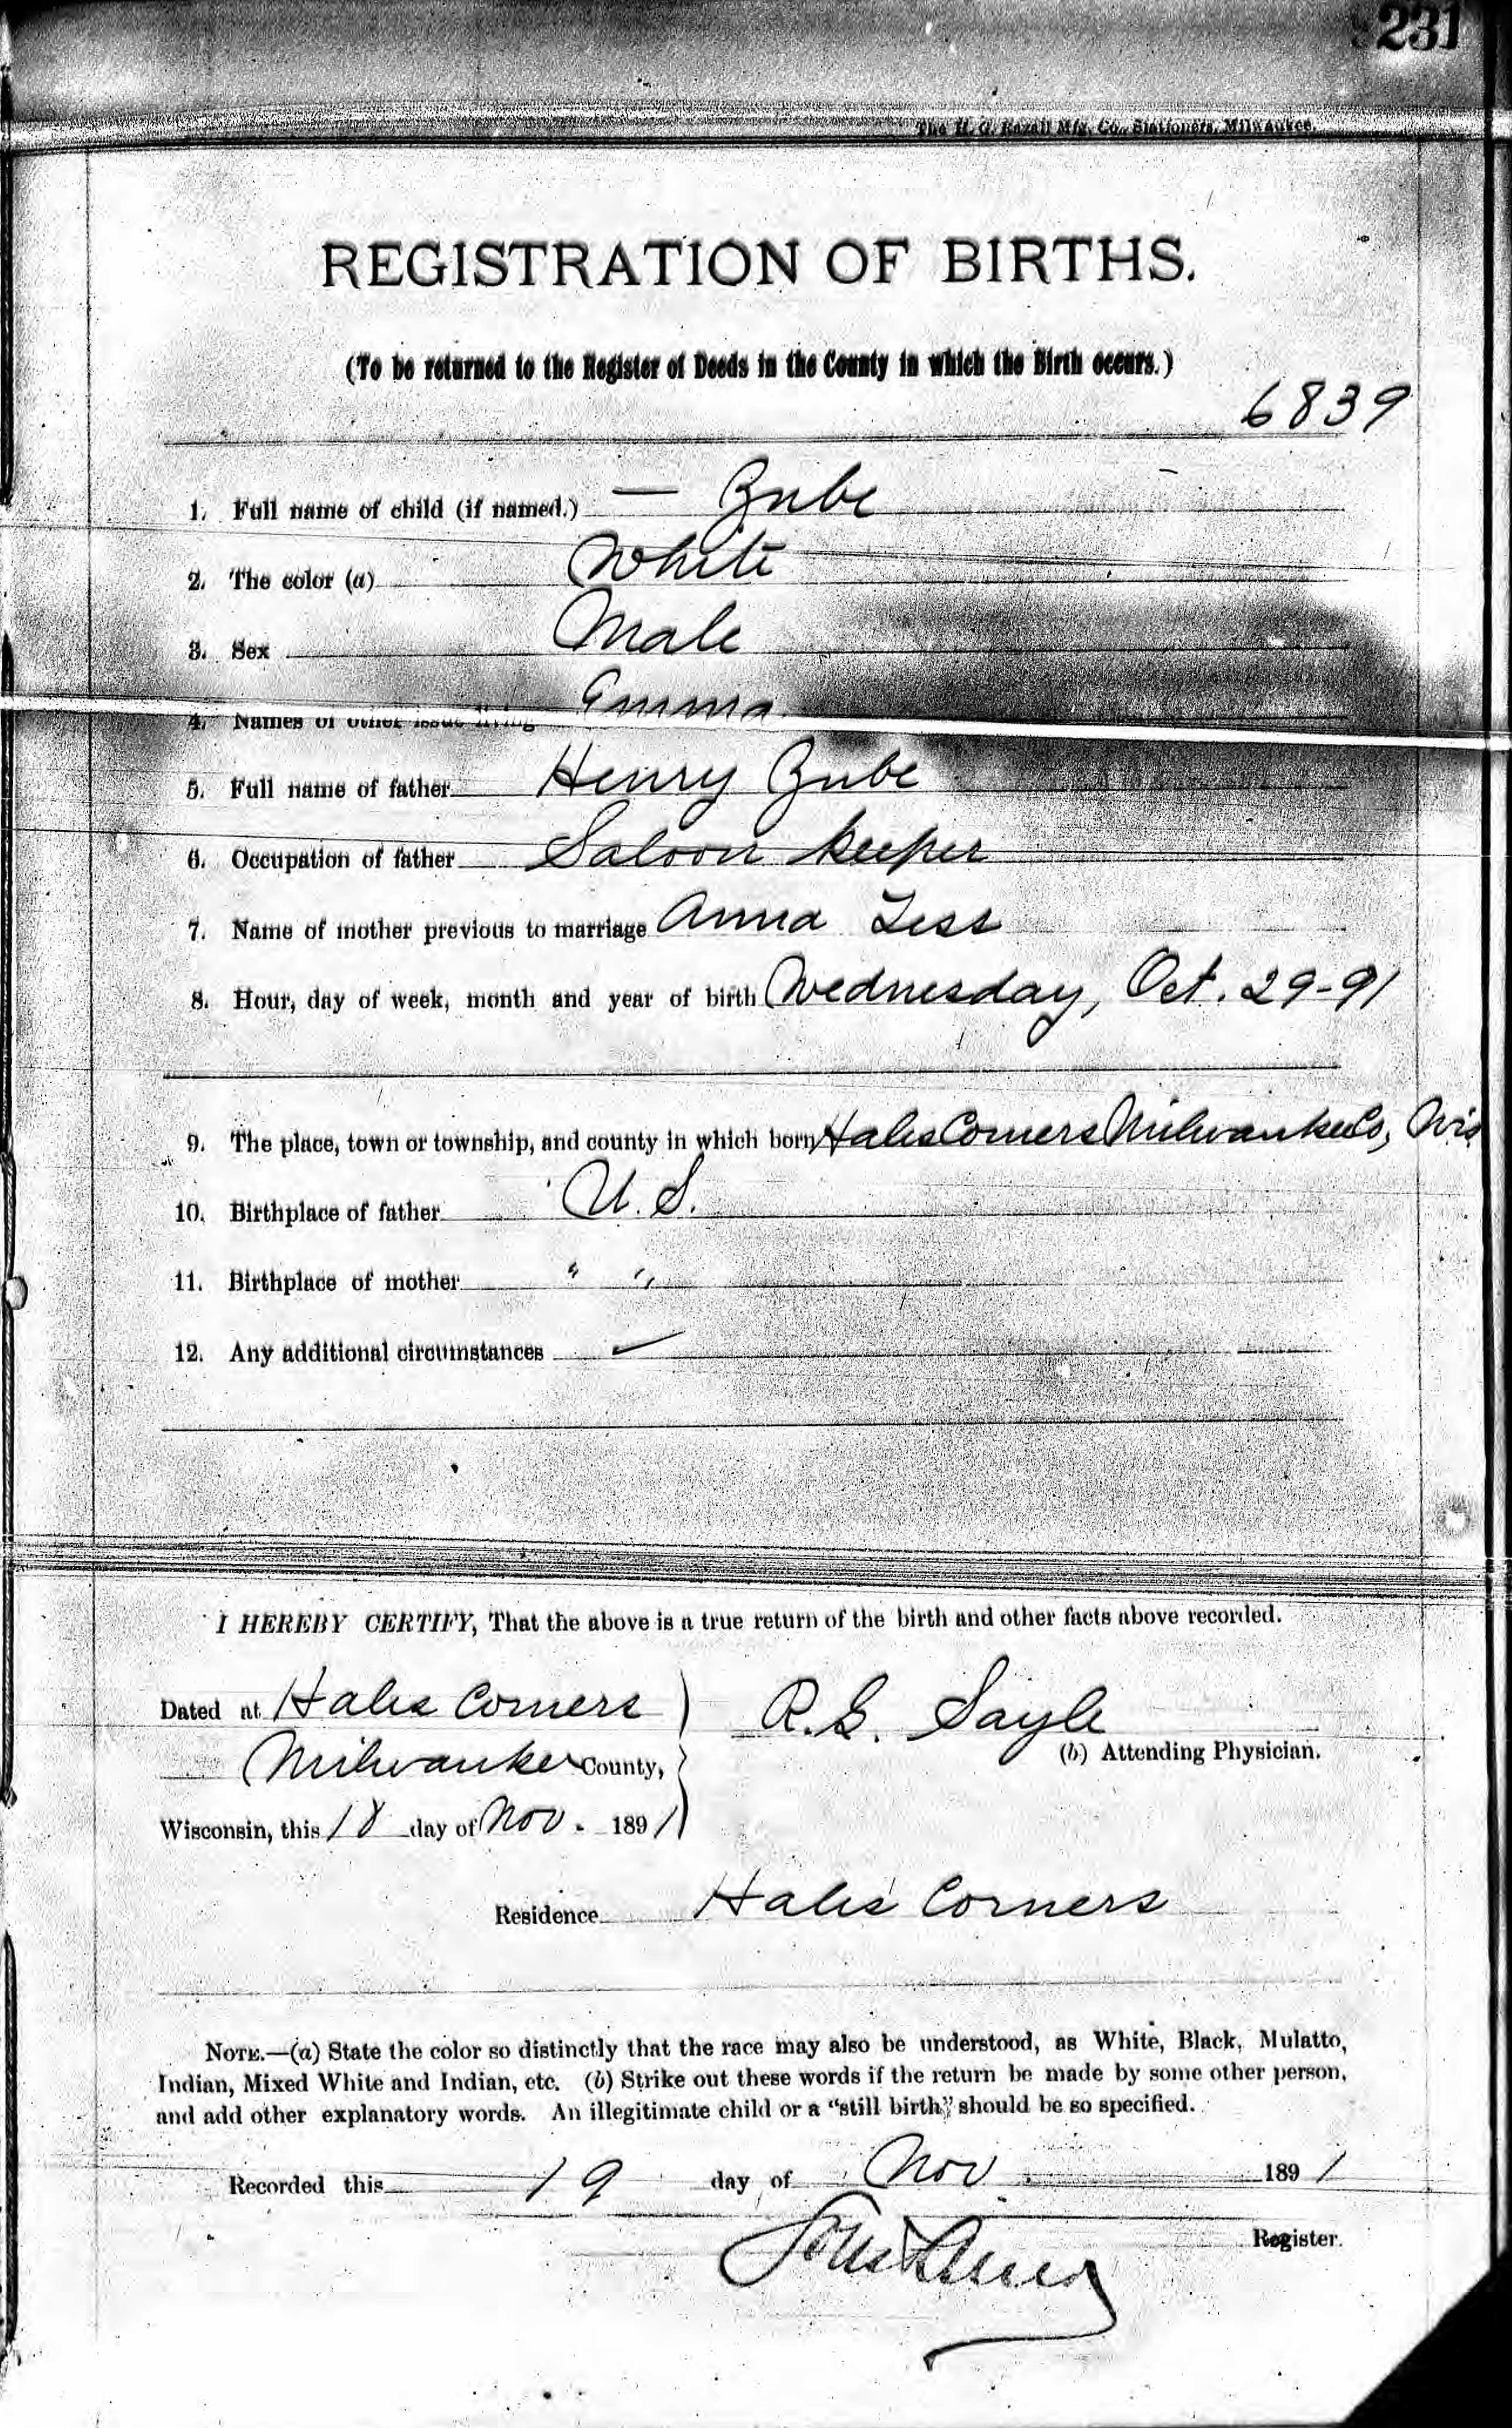 231
The H. G. Razall Mfg. Co., Stationers, Milwaukee.
REGISTRATION OF BIRTHS.
(To be returned to the Register of Deeds in the County in which the Birth occurs.)
6839
1. Full name of child (if named.) — Zube
2. The color (a) White
3. Sex Male
4. Names of other issue living Emma
5. Full name of father Henry Zube
6. Occupation of father Saloon keeper
7. Name of mother previous to marriage Anna Less
8. Hour, day of week, month and year of birth Wednesday, Oct. 29-91
9. The place, town or township, and county in which born Hales Corners Milwaukee Co, Wis
10. Birthplace of father U. S.
11. Birthplace of mother " "
12. Any additional circumstances —
I HEREBY CERTIFY, That the above is a true return of the birth and other facts above recorded.
Dated at Hales Corners
R. G. Sayle
Milwaukee County,
(b) Attending Physician.
Wisconsin, this 18 day of Nov. 1891
Residence Hales Corners
NOTE.—(a) State the color so distinctly that the race may also be understood, as White, Black, Mulatto,
Indian, Mixed White and Indian, etc. (b) Strike out these words if the return be made by some other person,
and add other explanatory words. An illegitimate child or a "still birth" should be so specified.
Recorded this 19 day of Nov 1891
Register.